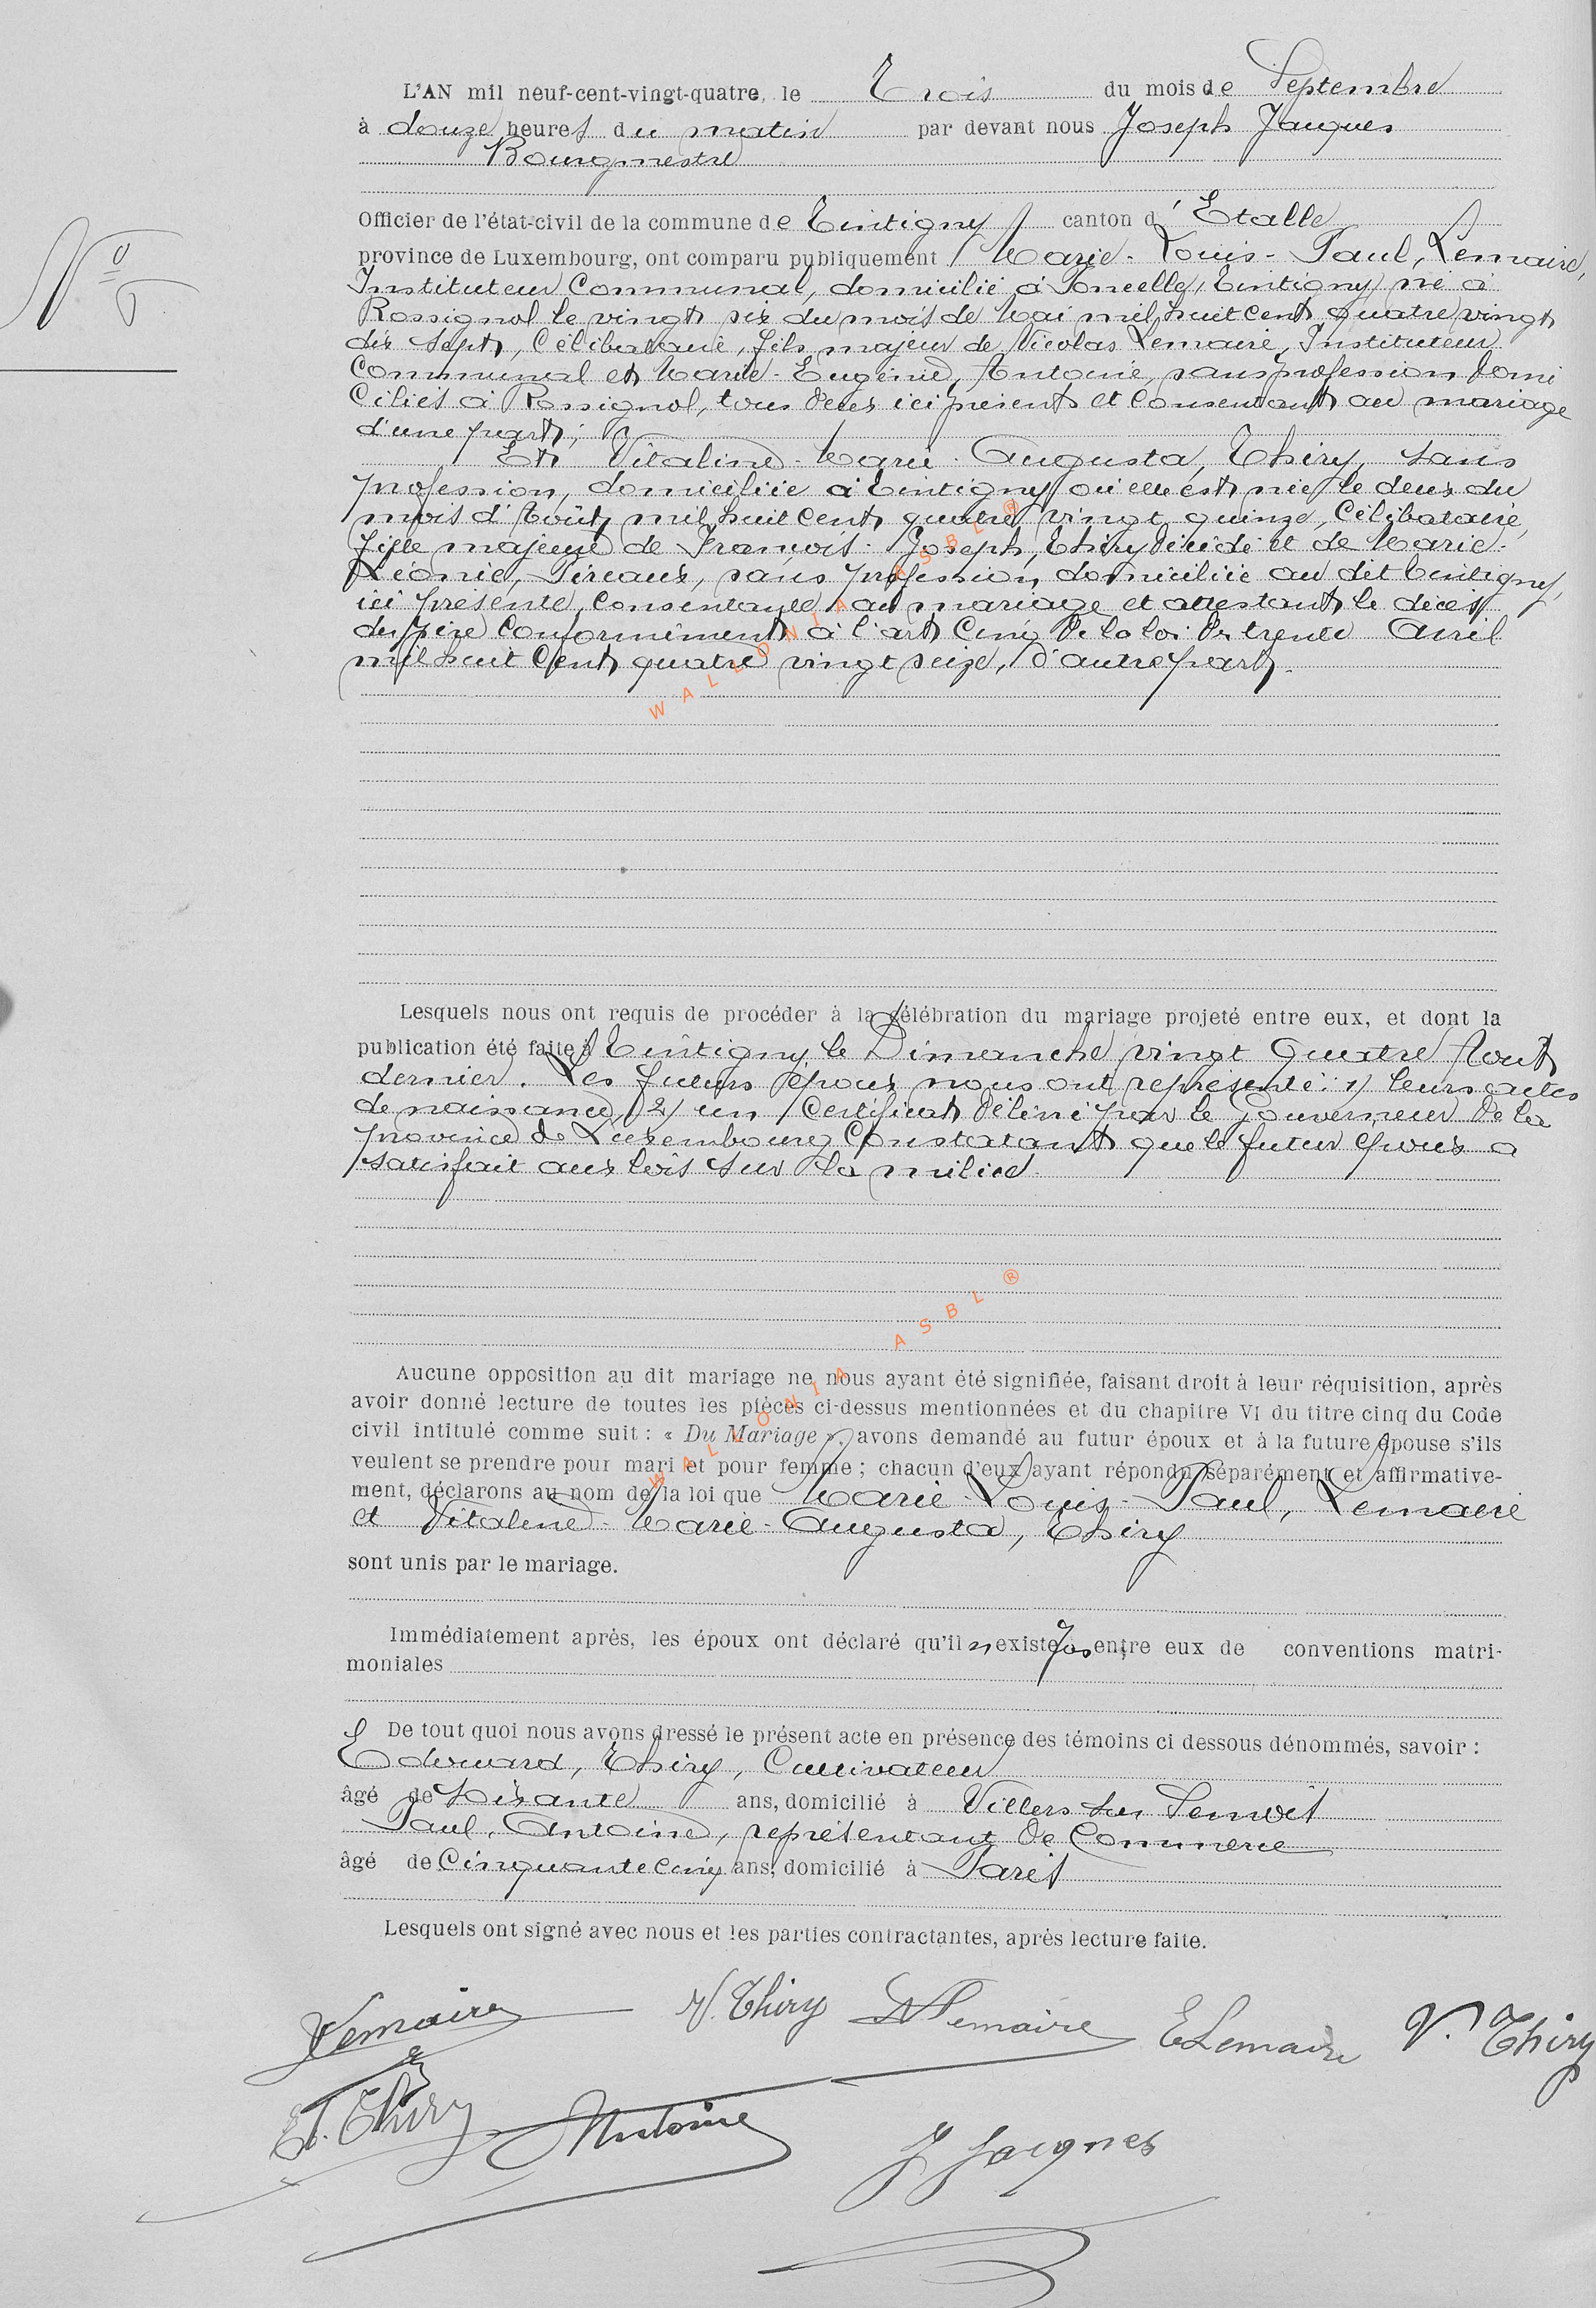 L'AN mil neuf-cent-vingt-quatre, le Trois du mois de Septembre
à douze heures du matin par devant nous Joseph Jacques
Bourgmestre
Officier de l'état-civil de la commune de Tintigny canton d'Etalle
province de Luxembourg, ont comparu publiquement Marie-Louis-Paul, Lemaire,
N° 6
Instituteur Communal, domicilié à Poncelle, Tintigny, né à
Rossignol le vingt six du mois de Mai mil huit cent quatre vingt
dix sept, célibataire, fils majeur de Nicolas Lemaire, Instituteur
Communal et Marie-Eugénie, Antoine, sans profession domi
ciliés à Rossignol, tous deux ici présents et consentant au mariage
d'une part;
Et Vitaline-Marie-Augusta, Thiry, sans
profession, domiciliée à Tintigny où elle est née le deux du
mois d'Août mil huit cent quatre vingt quinze, célibataire,
fille majeure de François-Joseph, Thiry décédé et de Marie-
Léonie, Pireaux, sans profession, domiciliée au dit Tintigny,
ici présente, consentante au mariage et attestant le décès
du père conformément à l'art cinq de la loi du trente Avril
mil huit cent quatre vingt seize, d'autre part.
WALLONIA ASBL ®
Lesquels nous ont requis de procéder à la célébration du mariage projeté entre eux, et dont la
publication été faite à Tintigny le Dimanche vingt quatre Août
dernier. Les futurs époux nous ont représenté: 1) leurs actes
de naissance, 2) un certificat délivré par le Gouverneur de la
province de Luxembourg constatant que le futur époux a
satisfait aux lois sur la milice.
WALLONIA ASBL ®
Aucune opposition au dit mariage ne nous ayant été signifiée, faisant droit à leur réquisition, après
avoir donné lecture de toutes les pièces ci-dessus mentionnées et du chapitre VI du titre cinq du Code
civil intitulé comme suit : « Du Mariage », avons demandé au futur époux et à la future épouse s'ils
veulent se prendre pour mari et pour femme ; chacun d'eux ayant répondu séparément et affirmative-
ment, déclarons au nom de la loi que Marie-Louis-Paul, Lemaire
et Vitaline-Marie-Augusta, Thiry
sont unis par le mariage.
Immédiatement après, les époux ont déclaré qu'il n'existe pas entre eux de conventions matri-
moniales
De tout quoi nous avons dressé le présent acte en présence des témoins ci dessous dénommés, savoir :
Edouard, Thiry, Cultivateur
âgé de soixante ans, domicilié à Villers sur Semois
Paul, Antoine, représentant de Commerce
âgé de Cinquante cinq ans, domicilié à Paris
Lesquels ont signé avec nous et les parties contractantes, après lecture faite.
Lemaire V. Thiry N Lemaire E Lemaire V. Thiry
E. Thiry Antoine J Jacques